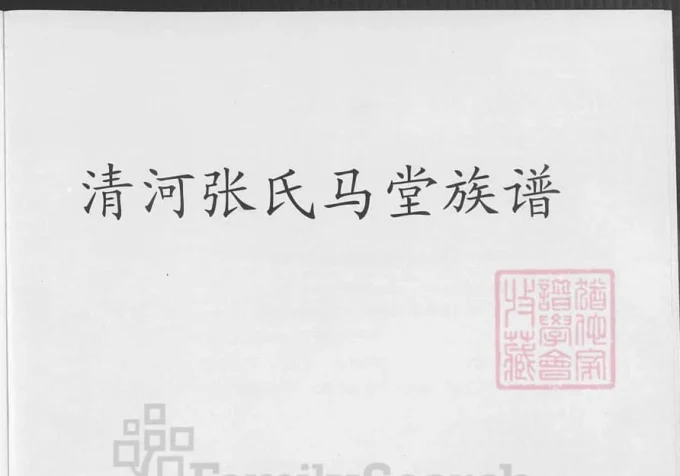 清河张氏马堂族谱
猶他家
譜學會
收藏
FamilySearch